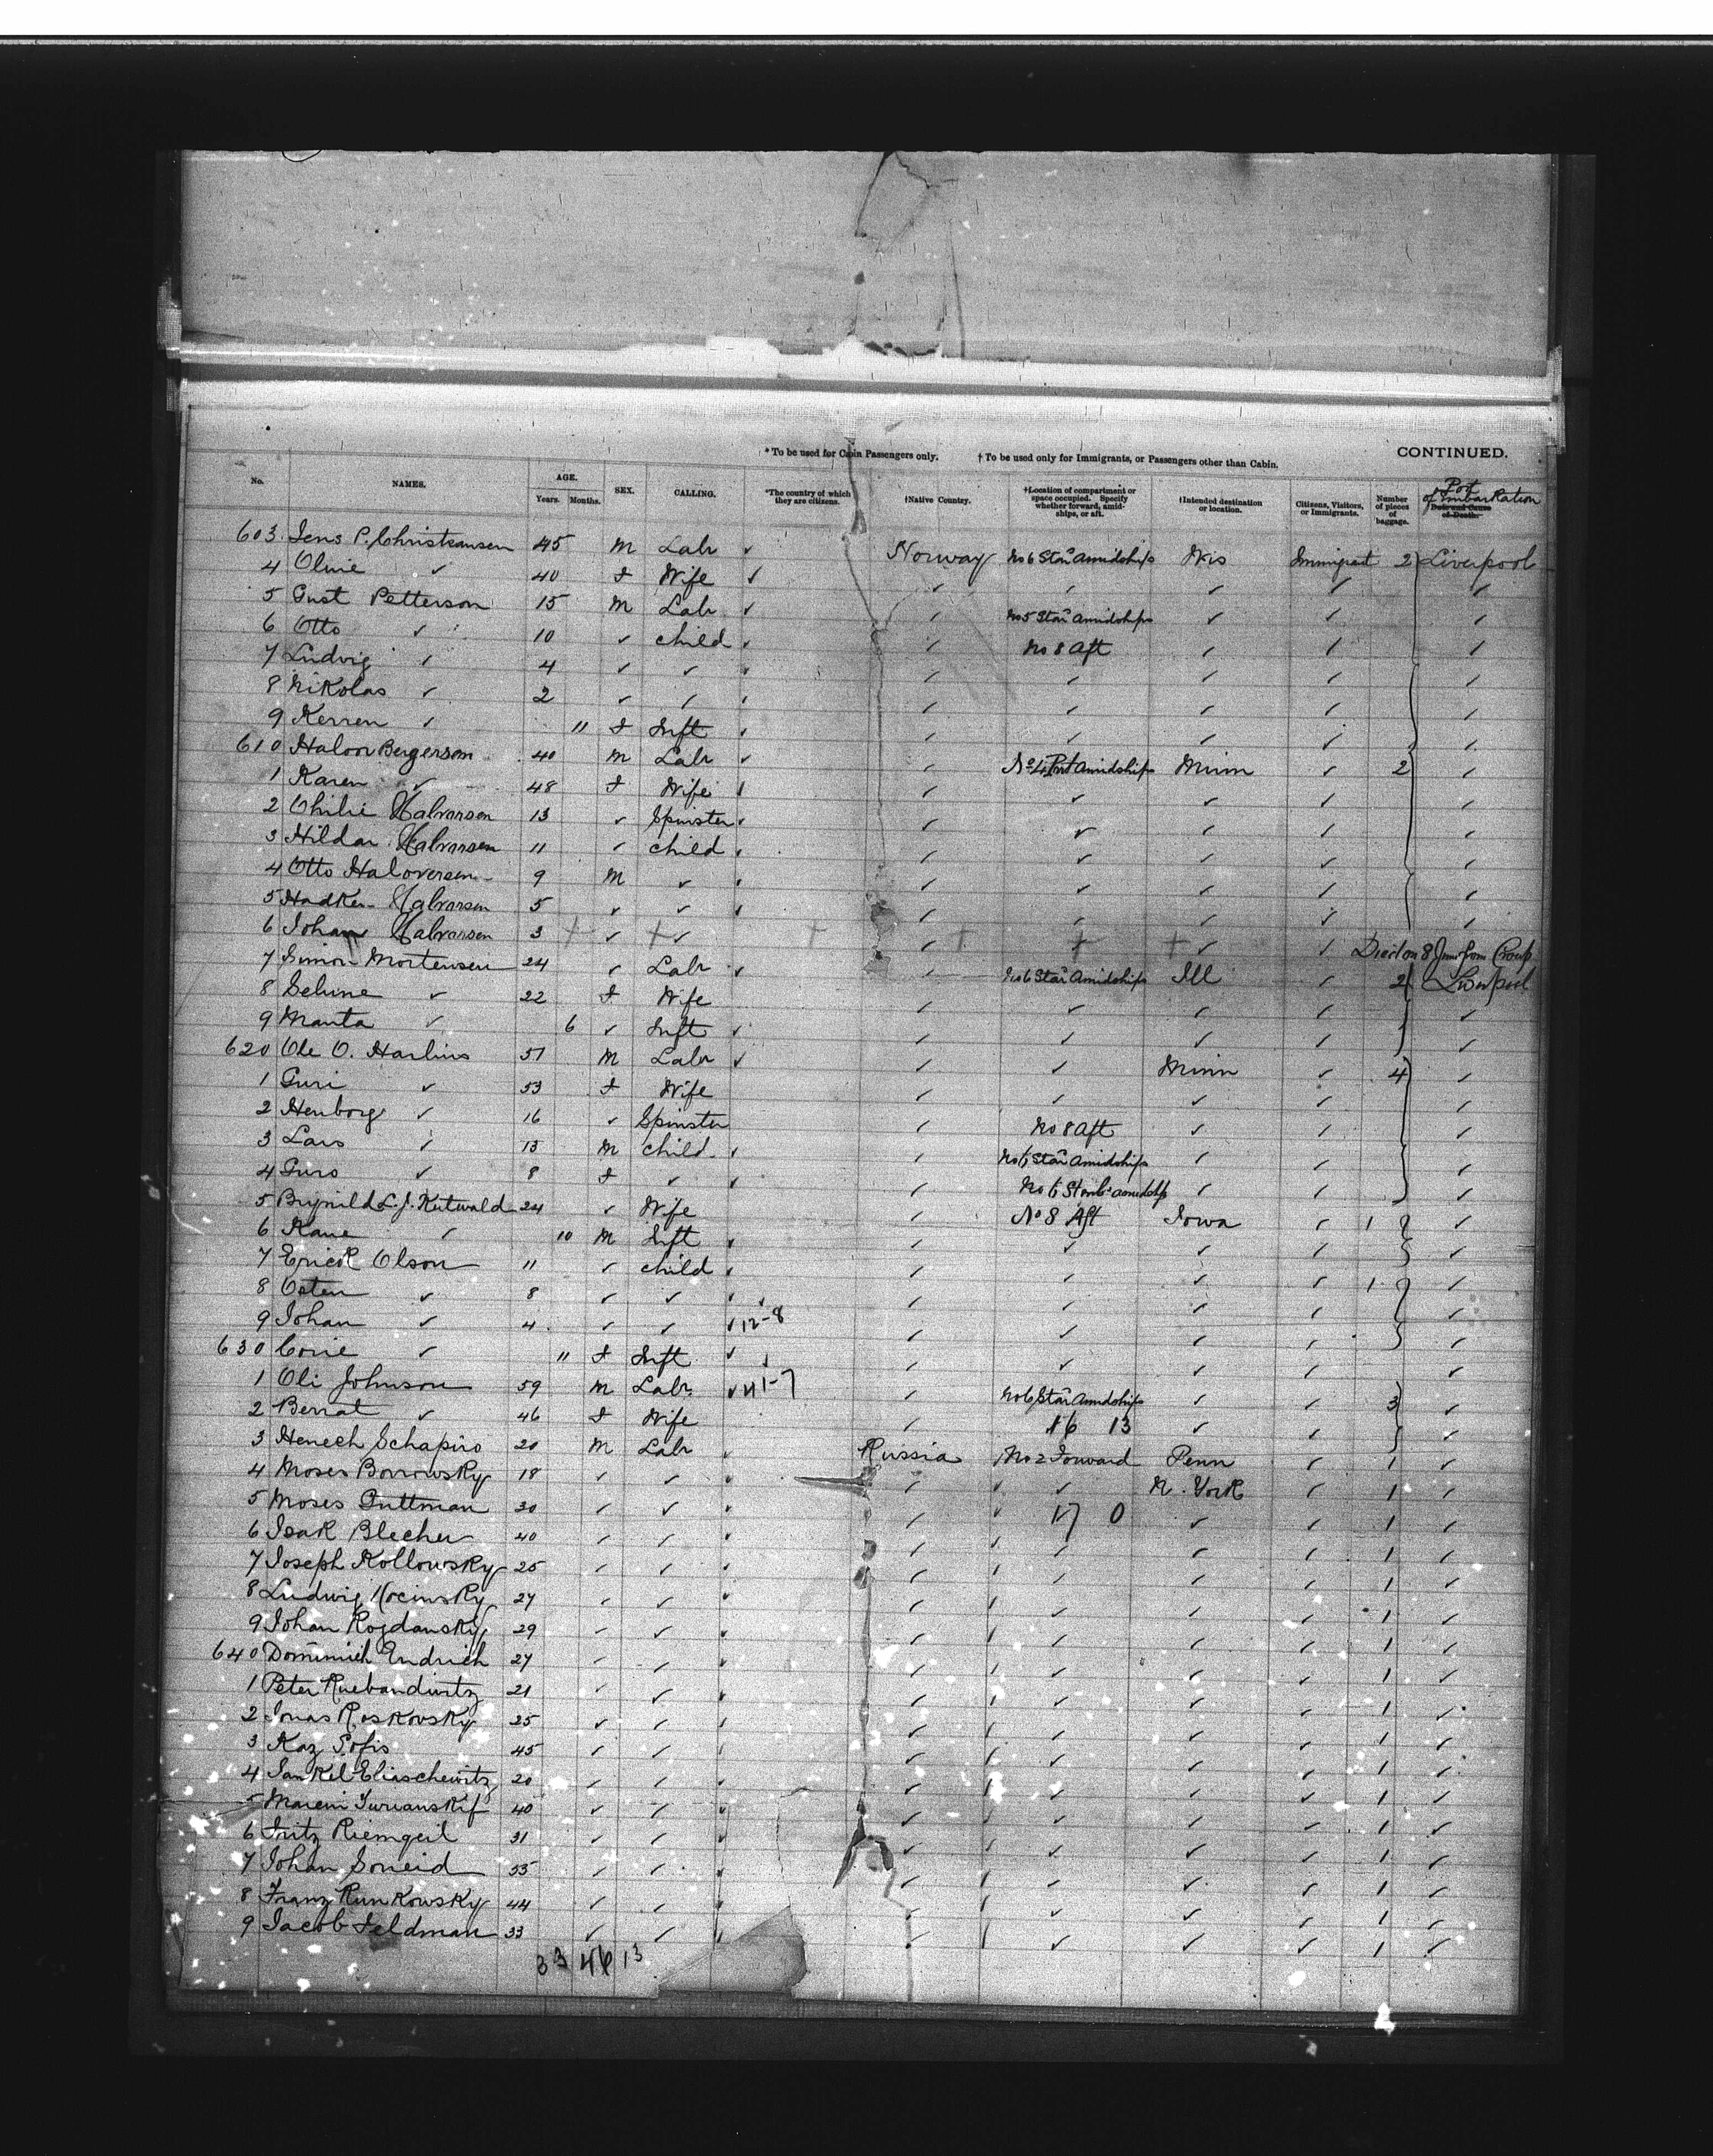 CONTINUED.
*To be used for Cabin Passengers only. †To be used only for Immigrants, or Passengers other than Cabin.
No. NAMES. AGE. Years. Months. SEX. CALLING. *The country of which they are citizens. †Native Country. †Location of compartment or space occupied. Specify whether forward, amidships, or aft. †Intended destination or location. Citizens, Visitors, or Immigrants. Number of pieces of baggage. Port of Embarkation Date and Cause of Death.
603 Jens P. Christiansen 45 m Labr ✓ Norway No 6 Star Amidships Wis Immigrant 2 Liverpool
4 Oline ✓ 40 f Wife ✓ ✓ ✓ ✓ ✓ ✓
5 Gust Petterson 15 m Labr ✓ ✓ No 5 Star Amidships ✓ ✓ ✓
6 Otto ✓ 10 ✓ child ✓ ✓ No 8 Aft ✓ ✓ ✓
7 Ludvig ✓ 4 ✓ ✓ ✓ ✓ ✓ ✓ ✓ ✓
8 Nikolas ✓ 2 ✓ ✓ ✓ ✓ ✓ ✓ ✓ ✓
9 Kerren ✓ 11 f Inft ✓ ✓ ✓ ✓ ✓ ✓
610 Halvor Bergerson 40 m Labr ✓ ✓ No 4 Port Amidships Minn ✓ 2 ✓
1 Karen ✓ 48 f Wife ✓ ✓ ✓ ✓ ✓ ✓
2 Halvorsen 13 ✓ Spinster ✓ ✓ ✓ ✓ ✓ ✓
3 Hildar Halvorsen 11 ✓ child ✓ ✓ ✓ ✓ ✓ ✓
4 Otto Haloversen 9 m ✓ ✓ ✓ ✓ ✓ ✓ ✓
5 Halvorsen 5 ✓ ✓ ✓ ✓ ✓ ✓ ✓ ✓
6 Johan Halvorsen 3 + ✓ + ✓ + ✓ + + + ✓ ✓ Died on 8 from Croup
7 Simon Mortensen 24 ✓ Labr ✓ ✓ No 6 Star Amidships Ill ✓ 2 Liverpool
8 Seline ✓ 22 f Wife ✓ ✓ ✓ ✓ ✓
9 Manta ✓ 6 ✓ Inft ✓ ✓ ✓ ✓ ✓ ✓
620 Ole O. 51 m Labr ✓ ✓ ✓ Minn ✓ 4 ✓
1 Guri ✓ 53 f Wife ✓ ✓ ✓ ✓ ✓
2 Henborg ✓ 16 ✓ Spinster ✓ No 8 Aft ✓ ✓ ✓
3 Lars ✓ 13 m child ✓ ✓ No 6 Star Amidships ✓ ✓ ✓
4 Guro ✓ 8 f ✓ ✓ ✓ No 6 Starb amidships ✓ ✓ ✓
5 Brynild L. J. Kutwald 24 ✓ Wife ✓ No 8 Aft Iowa ✓ 1 ✓
6 Kane ✓ 10 m Inft ✓ ✓ ✓ ✓ ✓ ✓
7 Erick Olson 11 ✓ child ✓ ✓ ✓ ✓ ✓ 1 ✓
8 Osten ✓ 8 ✓ ✓ ✓ ✓ ✓ ✓ ✓ ✓
9 Johan ✓ 4 ✓ ✓ ✓ 12-8 ✓ ✓ ✓ ✓ ✓
630 ✓ 11 f Inft ✓ ✓ ✓ ✓ ✓ ✓
1 Oli Johnson 59 m Labr ✓ ✓ No 6 Star Amidships ✓ ✓ 3 ✓
2 Berrat ✓ 46 f Wife ✓ 16 13 ✓ ✓ ✓
3 Henech Schapiro 20 m Labr ✓ Russia No 2 Forward Penn ✓ 1 ✓
4 Moses Borrowsky 18 ✓ ✓ ✓ ✓ ✓ N. York ✓ 1 ✓
5 Moses Guttman 30 ✓ ✓ ✓ ✓ 17 0 ✓ ✓ 1 ✓
6 Isak Blecher 40 ✓ ✓ ✓ ✓ ✓ ✓ ✓ 1 ✓
7 Joseph Kollowsky 25 ✓ ✓ ✓ ✓ ✓ ✓ ✓ 1 ✓
8 Ludwig Kocinsky 27 ✓ ✓ ✓ ✓ ✓ ✓ ✓ 1 ✓
9 Johan Rogdansky 29 ✓ ✓ ✓ ✓ ✓ ✓ ✓ 1 ✓
640 Dominich Endrich 27 ✓ ✓ ✓ ✓ ✓ ✓ ✓ 1 ✓
1 Peter 21 ✓ ✓ ✓ ✓ ✓ ✓ ✓ 1 ✓
2 Jonas Roskovsky 25 ✓ ✓ ✓ ✓ ✓ ✓ ✓ 1 ✓
3 Kaz Sofis 45 ✓ ✓ ✓ ✓ ✓ ✓ ✓ 1 ✓
4 Jankel Eliaschewitz 20 ✓ ✓ ✓ ✓ ✓ ✓ ✓ 1 ✓
5 40 ✓ ✓ ✓ ✓ ✓ ✓ ✓ 1 ✓
6 Fritz Riemgeil 31 ✓ ✓ ✓ ✓ ✓ ✓ ✓ 1 ✓
7 Johan Soneid 35 ✓ ✓ ✓ ✓ ✓ ✓ ✓ 1 ✓
8 Franz Runkowsky 44 ✓ ✓ ✓ ✓ ✓ ✓ ✓ 1 ✓
9 Jacob Feldman 33 ✓ ✓ ✓ ✓ ✓ ✓ ✓ 1 ✓
33 46 13